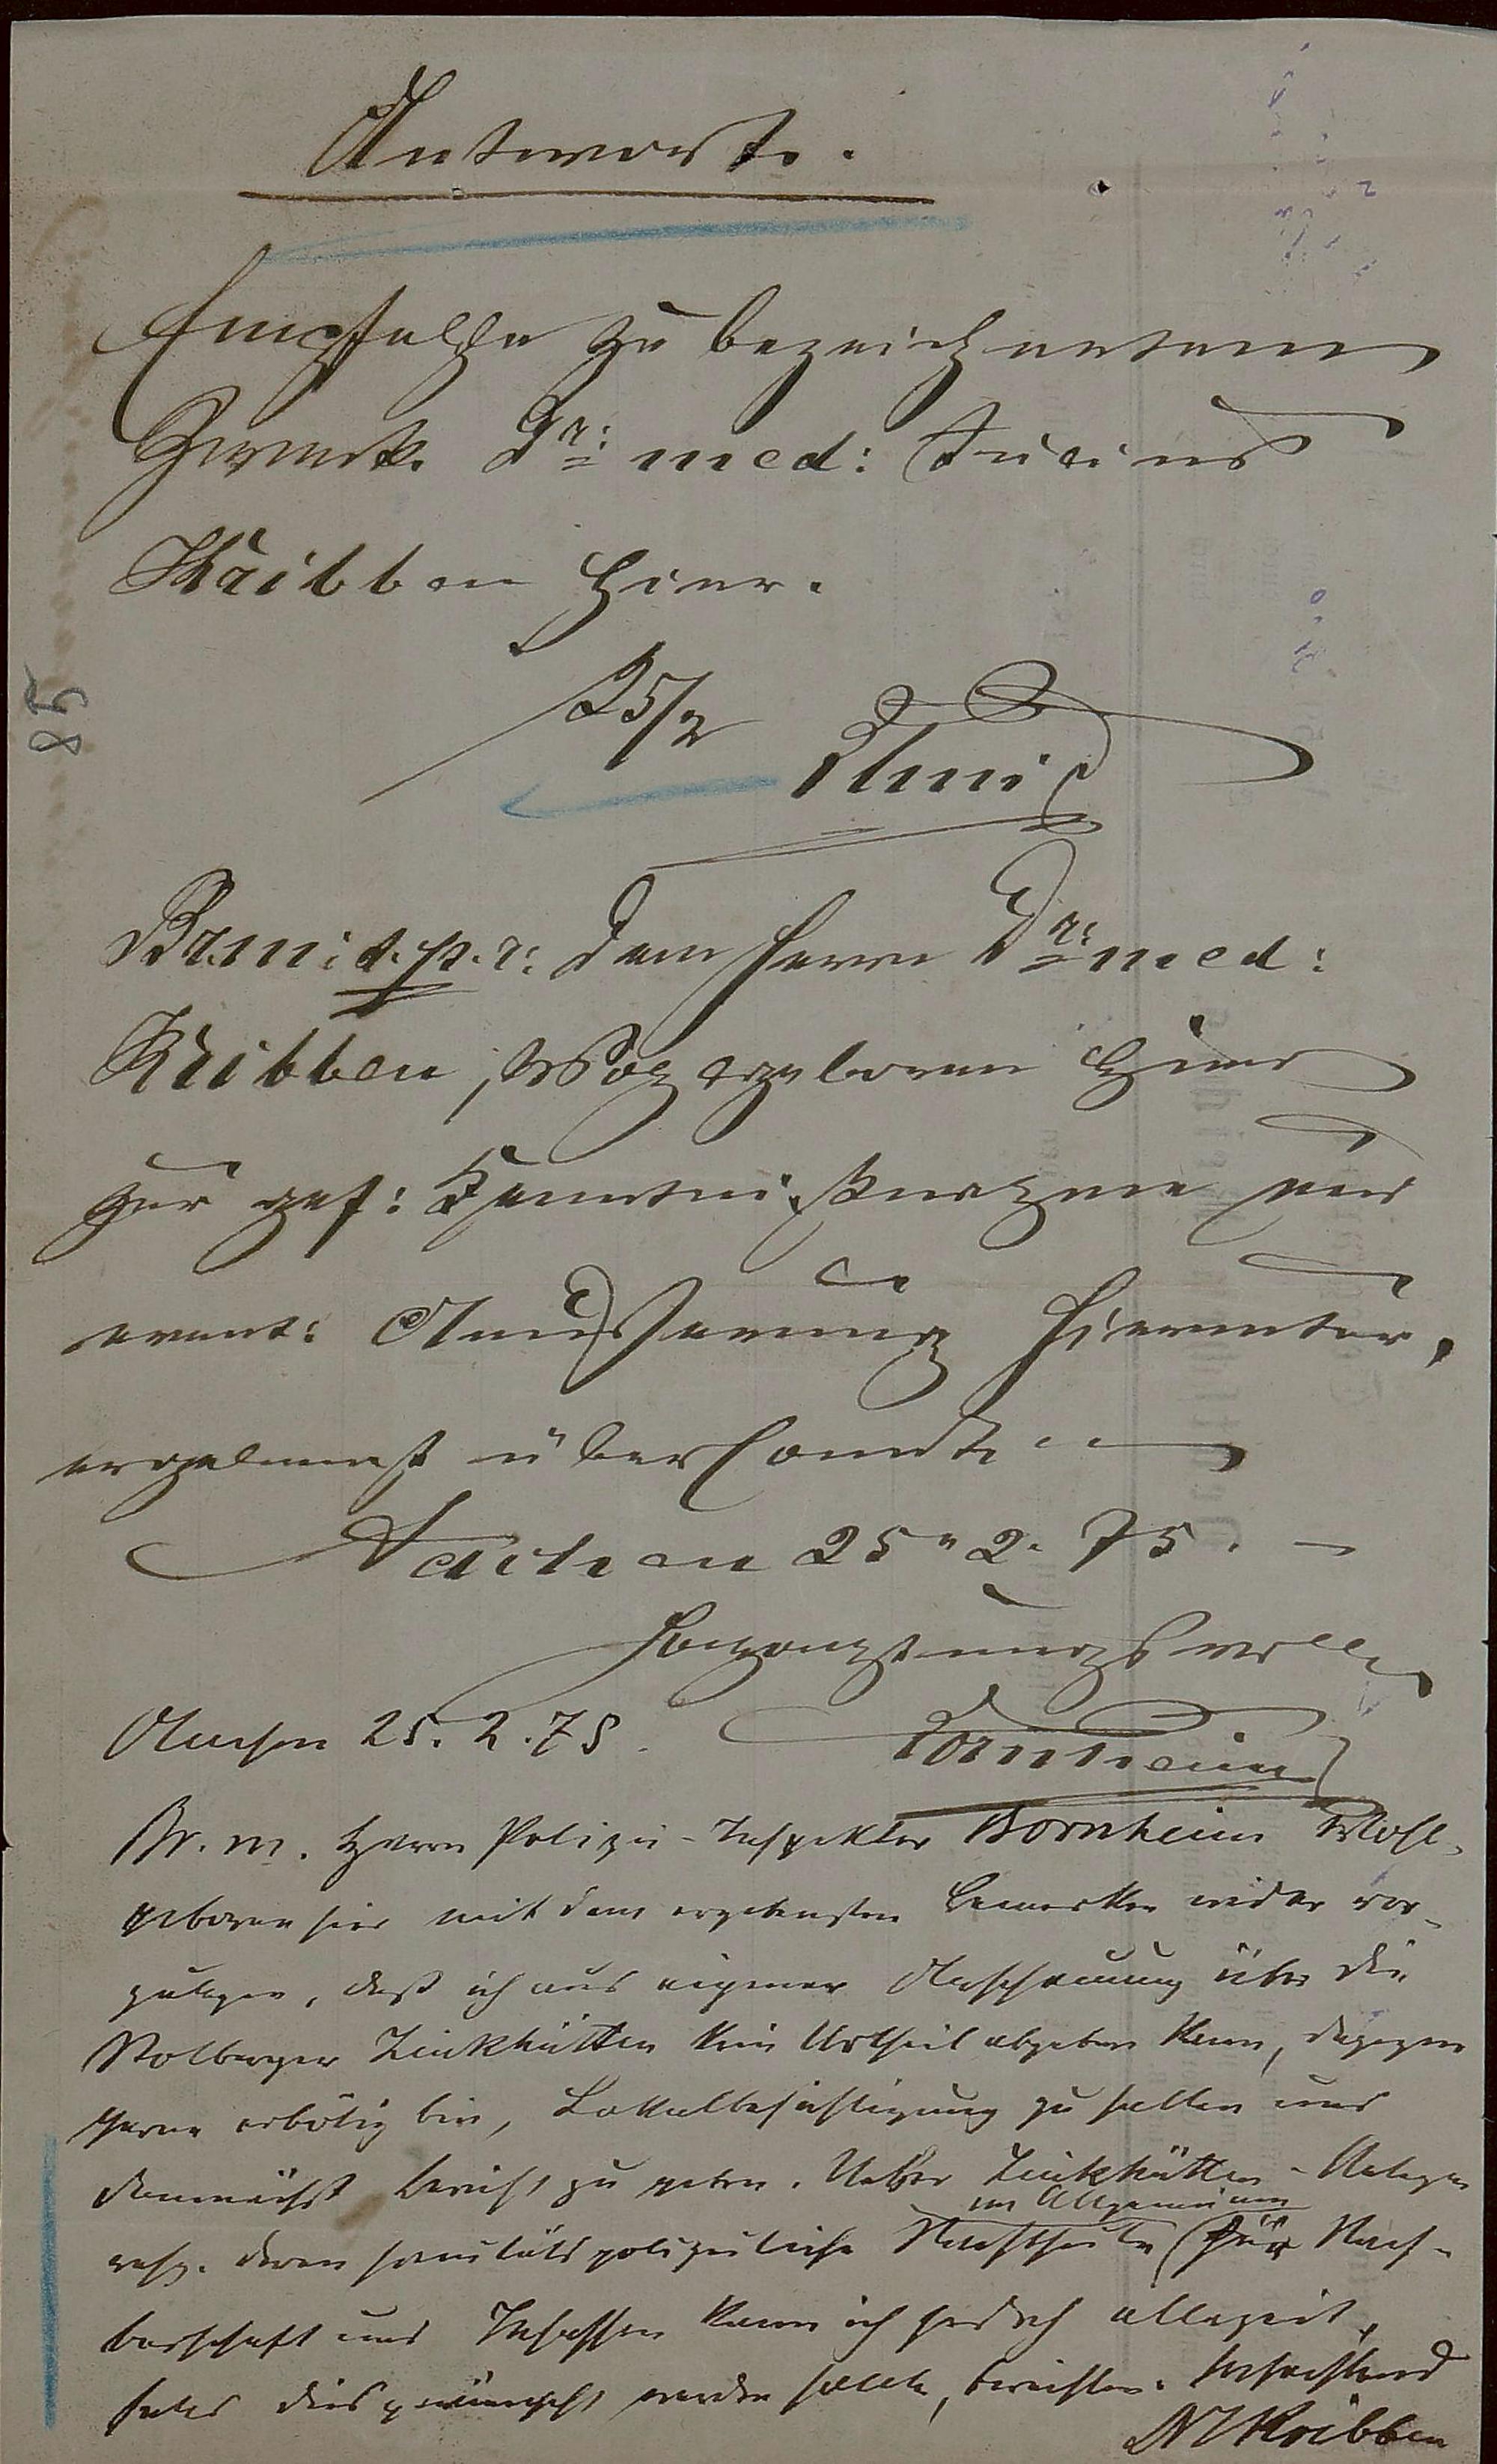 Antwort.
Empfehle zu bezeichnetem
Zwecke Dr: med:
Kribben hier.
25/2
Br. m. d. p. r. dem Herrn Dr: med:
Kribben, Wohlgeboren hier
zur gef: Kenntnißnahme und
event: Aeusserung hierunter,
ergebenst übersandt
Aachen 25" 2. 75.
Hochachtungsvoll
Bornheim
Aachen 25. 2. 75.
Br. m. Herrn Polizei-Inspektor Bornheim Wohl-
geboren hier mit dem ergebensten Bemerken wieder vor-
zulegen, daß ich aus eigener Anschauung über die
Stolberger Zinkhütten kein Urtheil abgeben kann, dagegen
gerne erbötig bin, Lokalbesichtigung zu halten und
demnächst Bericht zu geben. Ueber Zinkhütten-Anlagen
im Allgemeinen
resp. deren sanitätspolizeiliche Nachtheile für Nach-
barschaft und Insassen kann ich jedoch allezeit,
falls dies gewünscht werden sollte, berichten.
Dr Kribben
85